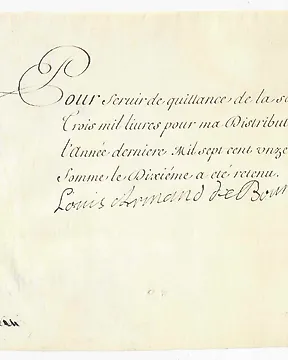 Pour Servir de quittance de la so
Trois mil livres pour ma Distribut
l'Année derniere Mil sept cent unze
Somme le Dixiéme a eté retenu.
Louis Armand de Bour